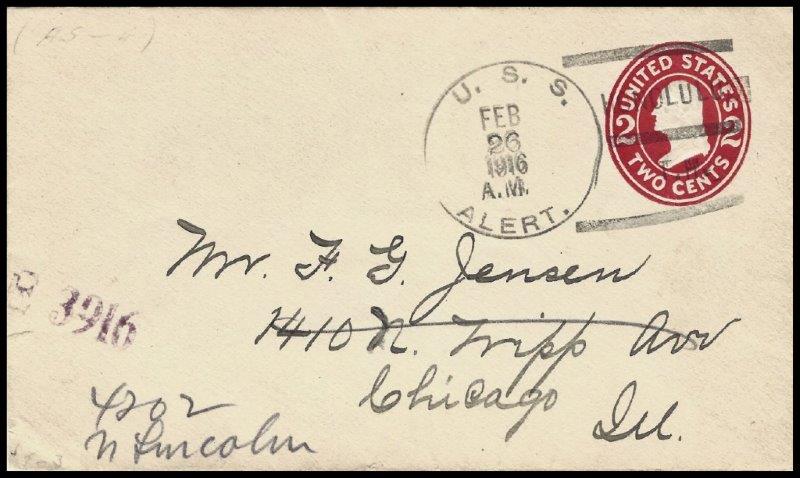 (AS-4)
U. S. S.
FEB
26
1916
A.M.
ALERT.
UNITED STATES
2 2
TWO CENTS
HONOLULU
T. H.
Mr. F. G. Jensen
1410 N. Tripp Ave
Chicago
Ill.
R 3916
4202
N Lincoln